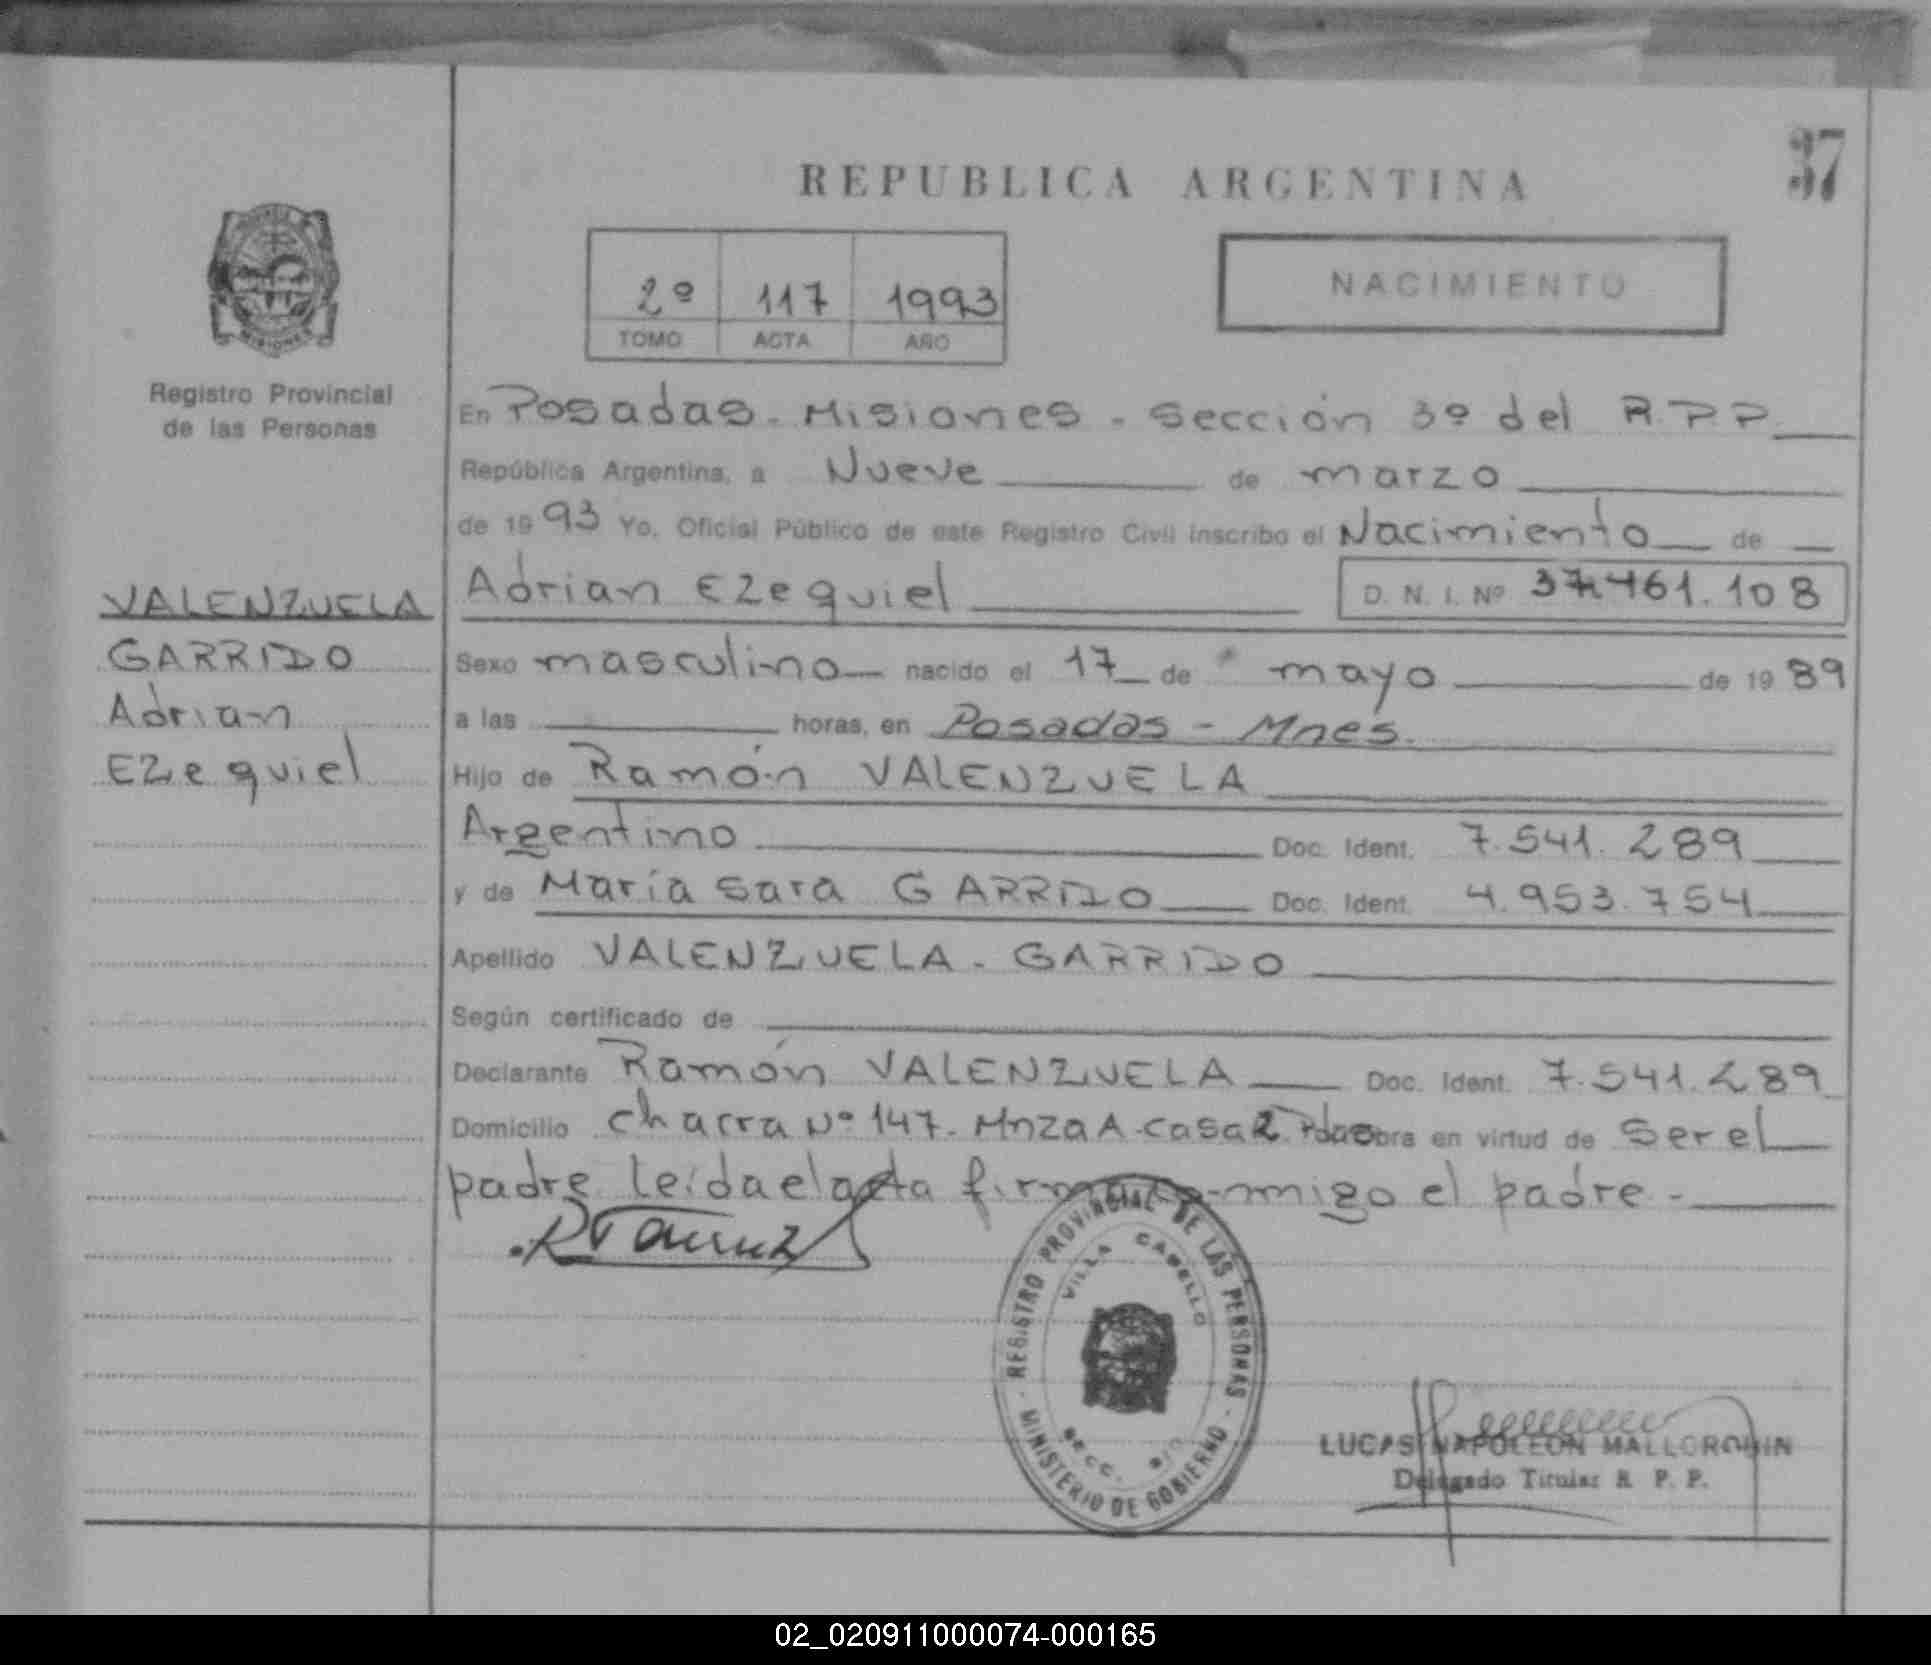 37
REPUBLICA ARGENTINA
2º 117 1993
TOMO ACTA AÑO
NACIMIENTO
MISIONES
Registro Provincial
de las Personas
En Posadas - Misiones - Sección 3º del R.P.P.
República Argentina, a Nueve de marzo
de 1993 Yo, Oficial Público de este Registro Civil inscribo el Nacimiento de
Adrian Ezequiel D. N. I. Nº 37.461.108
VALENZUELA
GARRIDO
Adrian
Ezequiel
Sexo masculino nacido el 17 de mayo de 1989
a las horas, en Posadas - Mnes.
Hijo de Ramón VALENZUELA
Argentino Doc. Ident. 7.541.289
y de María Sara GARRIDO Doc. Ident. 4.953.754
Apellido VALENZUELA - GARRIDO
Según certificado de
Declarante Ramón VALENZUELA Doc. Ident. 7.541.289
Domicilio Chacra Nº 147. Mnza A casa 2. Pdas obra en virtud de ser el
padre leída el acta firma conmigo el padre -
REGISTRO PROVINCIAL DE LAS PERSONAS - MINISTERIO DE GOBIERNO -
VILLA CABELLO
SECC.
LUCAS NAPOLEON MALLORQUIN
Delegado Titular R. P. P.
02_020911000074-000165